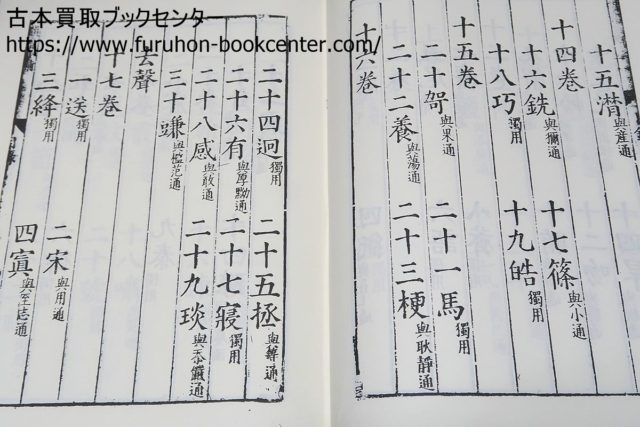 古本買取ブックセンター
https://www.furuhon-bookcenter.com/
十五潸與產通
十四巻
十六銑與獮通 十七篠與小通
十八巧獨用 十九皓獨用
十五巻
二十哿與果通 二十一馬獨用
二十二養與蕩通 二十三梗與耿靜通
十六巻
二十四迥獨用 二十五拯與等通
二十六有與厚黝通 二十七寑獨用
二十八感與敢通 二十九琰與忝儼通
三十豏與檻范通
去聲
十七巻
一送獨用 二宋與用通
三絳獨用 四寘與至志通